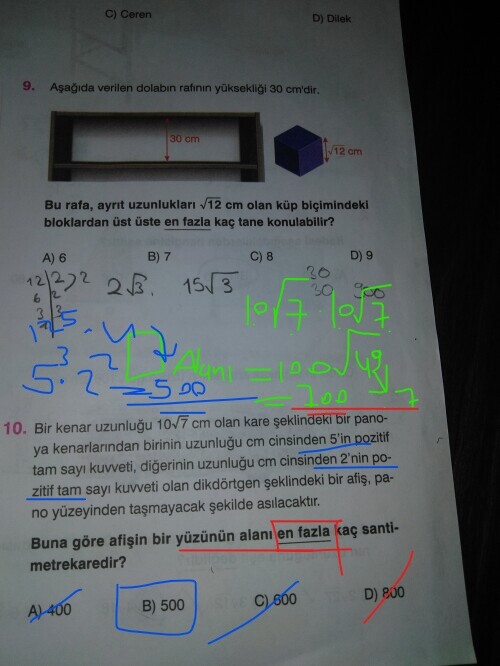 C) Ceren D) Dilek
9. Aşağıda verilen dolabın rafının yüksekliği 30 cm'dir.
30 cm
√12 cm
Bu rafa, ayrıt uzunlukları √12 cm olan küp biçimindeki
bloklardan üst üste en fazla kaç tane konulabilir?
A) 6 B) 7 C) 8 D) 9
12 2
6 2
3 3
2√3 15√3
30
30 900
10√7 . 10√7
5³ . 2² = 500
Alanı = 100√49
= 700 7
10. Bir kenar uzunluğu 10√7 cm olan kare şeklindeki bir pano-
ya kenarlarından birinin uzunluğu cm cinsinden 5'in pozitif
tam sayı kuvveti, diğerinin uzunluğu cm cinsinden 2'nin po-
zitif tam sayı kuvveti olan dikdörtgen şeklindeki bir afiş, pa-
no yüzeyinden taşmayacak şekilde asılacaktır.
Buna göre afişin bir yüzünün alanı en fazla kaç santi-
metrekaredir?
A) 400 B) 500 C) 600 D) 800